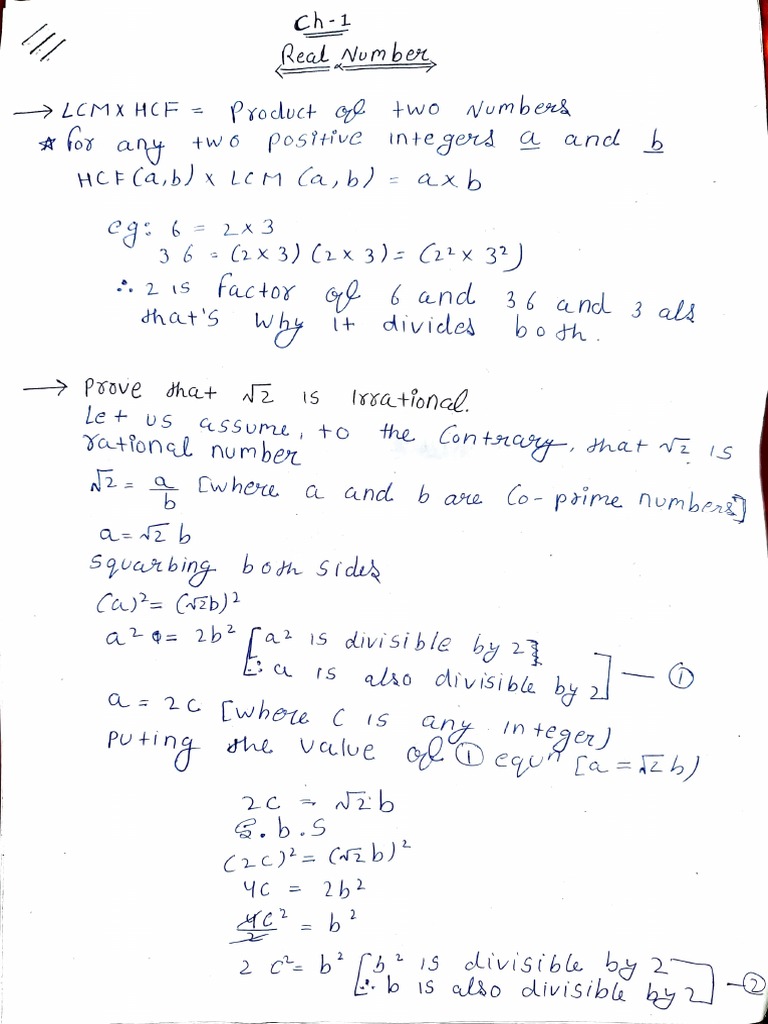 Ch-1
Real Number
→ LCM x HCF = Product of two Numbers
* for any two positive integers a and b
HCF(a,b) x LCM (a,b) = a x b
eg: 6 = 2 x 3
36 = (2 x 3) (2 x 3) = (2² x 3²)
∴ 2 is factor of 6 and 36 and 3 als
that's why it divides both.
→ Prove that √2 is Irrational.
Let us assume, to the Contrary, that √2 is
rational number
√2 = a/b [where a and b are Co-prime numbers]
a = √2 b
Squarbing both sides
(a)² = (√2b)²
a² = 2b² [a² is divisible by 2]
[∴ a is also divisible by 2] — ①
a = 2c [where c is any integer)
Puting the value of ① equⁿ [a = √2 b)
2c = √2 b
S.b.S
(2c)² = (√2 b)²
4c = 2b²
4c²/2 = b²
2 c² = b² [b² is divisible by 2
[∴ b is also divisible by 2] — ②